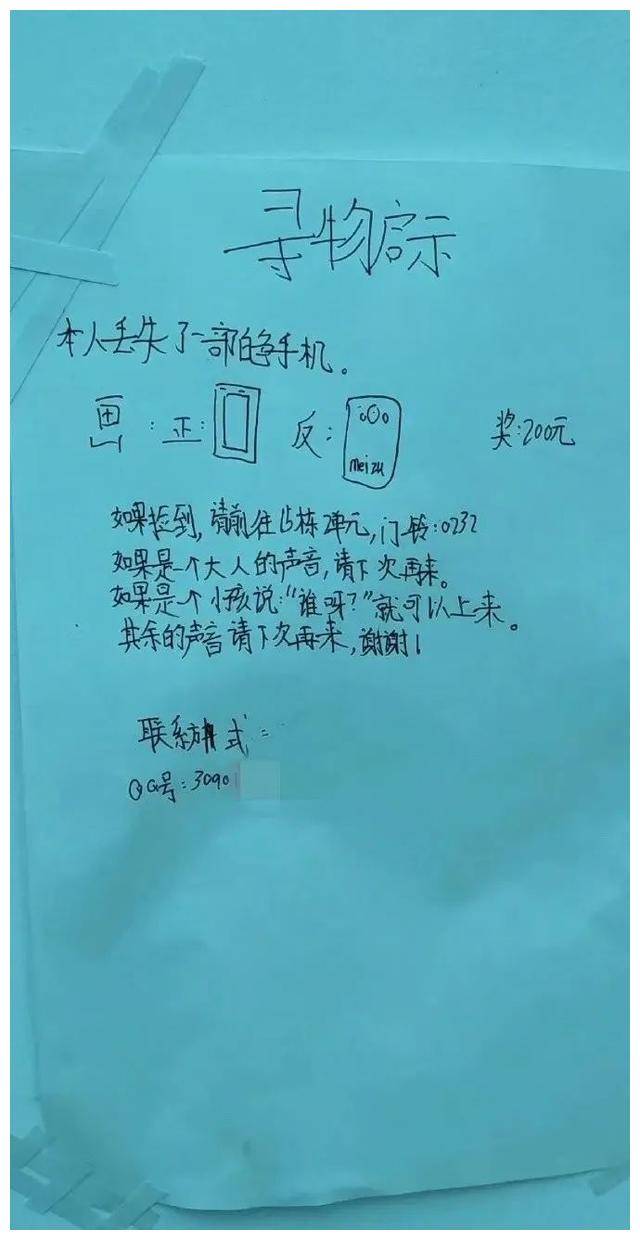 寻物启示
本人丢失了一部白色手机。
画:正: 反: meizu 奖:200元
如果捡到,请前往15栋2单元,门铃:0232
如果是一个大人的声音,请下次再来。
如果是个小孩说:“谁呀?”就可以上来。
其余的声音请下次再来,谢谢!
联系方式:
QQ号:3090